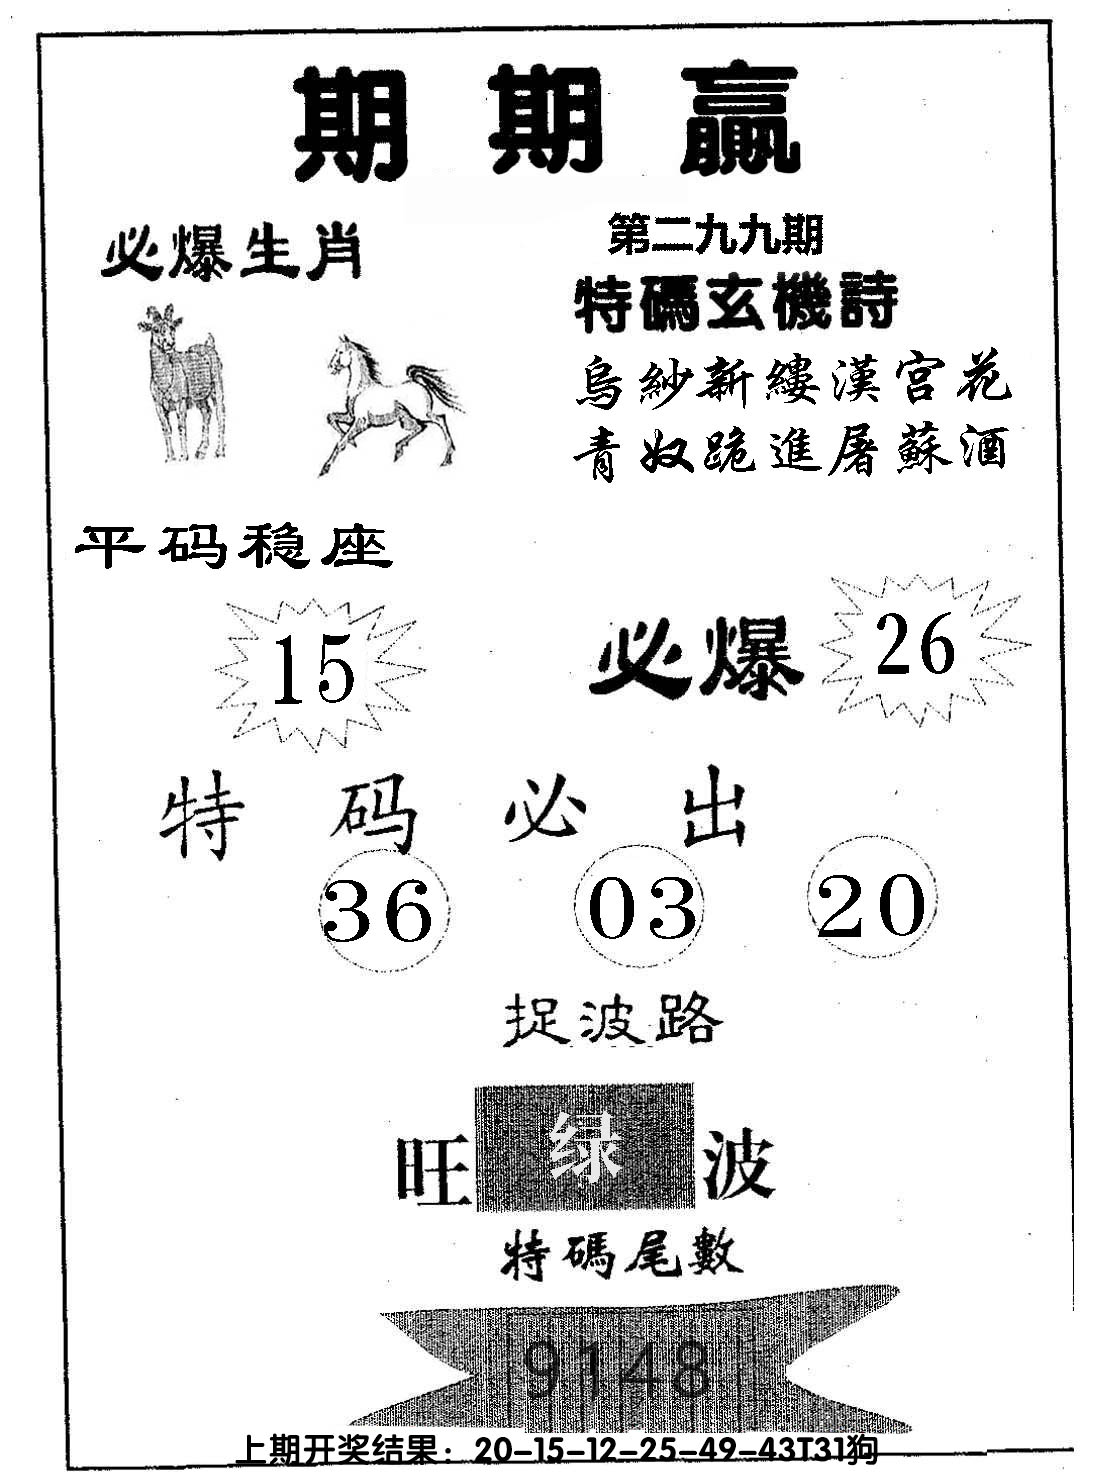 期期赢
必爆生肖
第二九九期
特碼玄機詩
烏紗新縷漢宮花
青奴跪進屠蘇酒
平码稳座
15
必爆 26
特码必出
36 03 20
捉波路
旺 绿 波
特碼尾數
9148
上期开奖结果：20-15-12-25-49-43T31狗